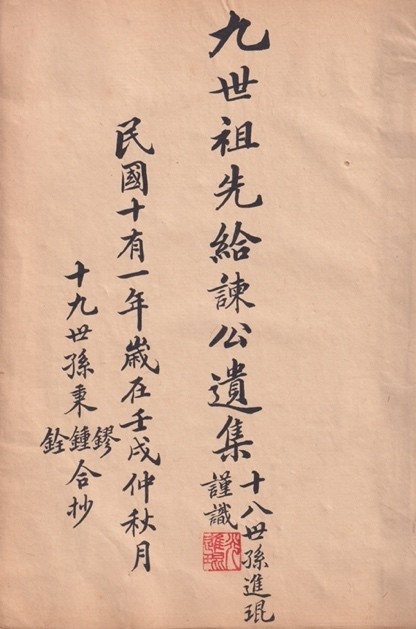 九世祖先給諫公遺集
十八世孫進琨
謹識
民國十有一年歲在壬戌仲秋月
十九世孫秉鏐鍾銓合抄